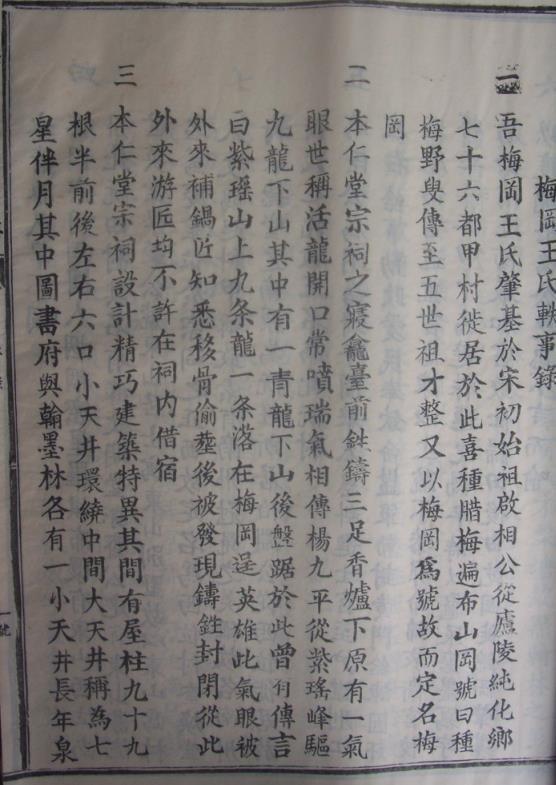 梅岡王氏軼事錄
一 吾梅岡王氏肇基於宋初始祖啟相公從廬陵純化鄉
七十六都甲村徙居於此喜種腊梅遍布山岡號曰種
梅野叟傳至五世祖才整又以梅岡為號故而定名梅
岡
二 本仁堂宗祠之寢龕臺前鉄鑄三足香爐下原有一氣
眼世稱活龍開口常噴瑞氣相傳楊九平從紫瑤峰驅
九龍下山其中有一青龍下山後盤踞於此曾有傳言
曰紫瑤山上九条龍一条落在梅岡逞英雄此氣眼被
外來補鍋匠知悉移骨偷塟後被發現鑄鉎封閉從此
外來游匠均不許在祠内借宿
三 本仁堂宗祠設計精巧建築特異其間有屋柱九十九
根半前後左右六口小天井環繞中間大天井稱為七
星伴月其中圖書府與翰墨林各有一小天井長年泉
號